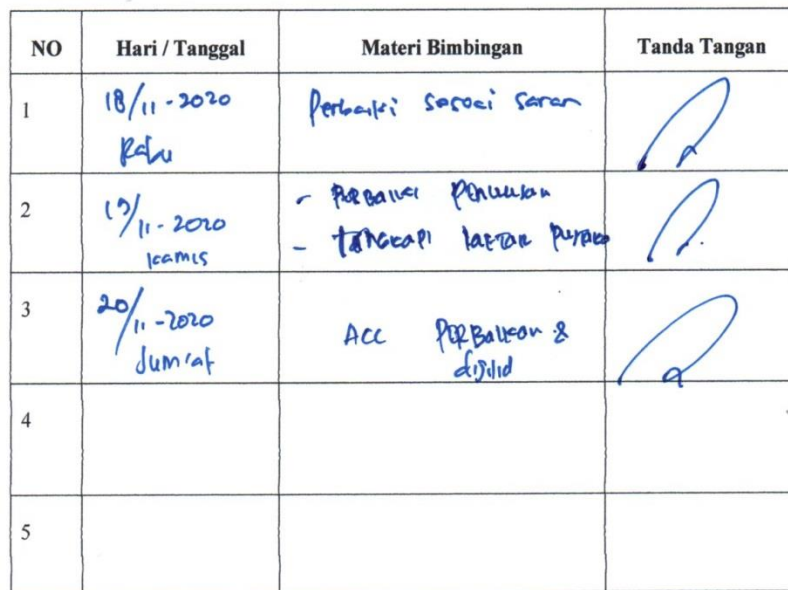 NO Hari / Tanggal Materi Bimbingan Tanda Tangan
1 18/11-2020 Perbaiki sesuai saran
Rabu
2 19/11-2020 - Perbaiki Penulisan
kamis - lengkapi daftar pustaka
3 20/11-2020 ACC Perbaikan &
Jum'at dijilid
4
5